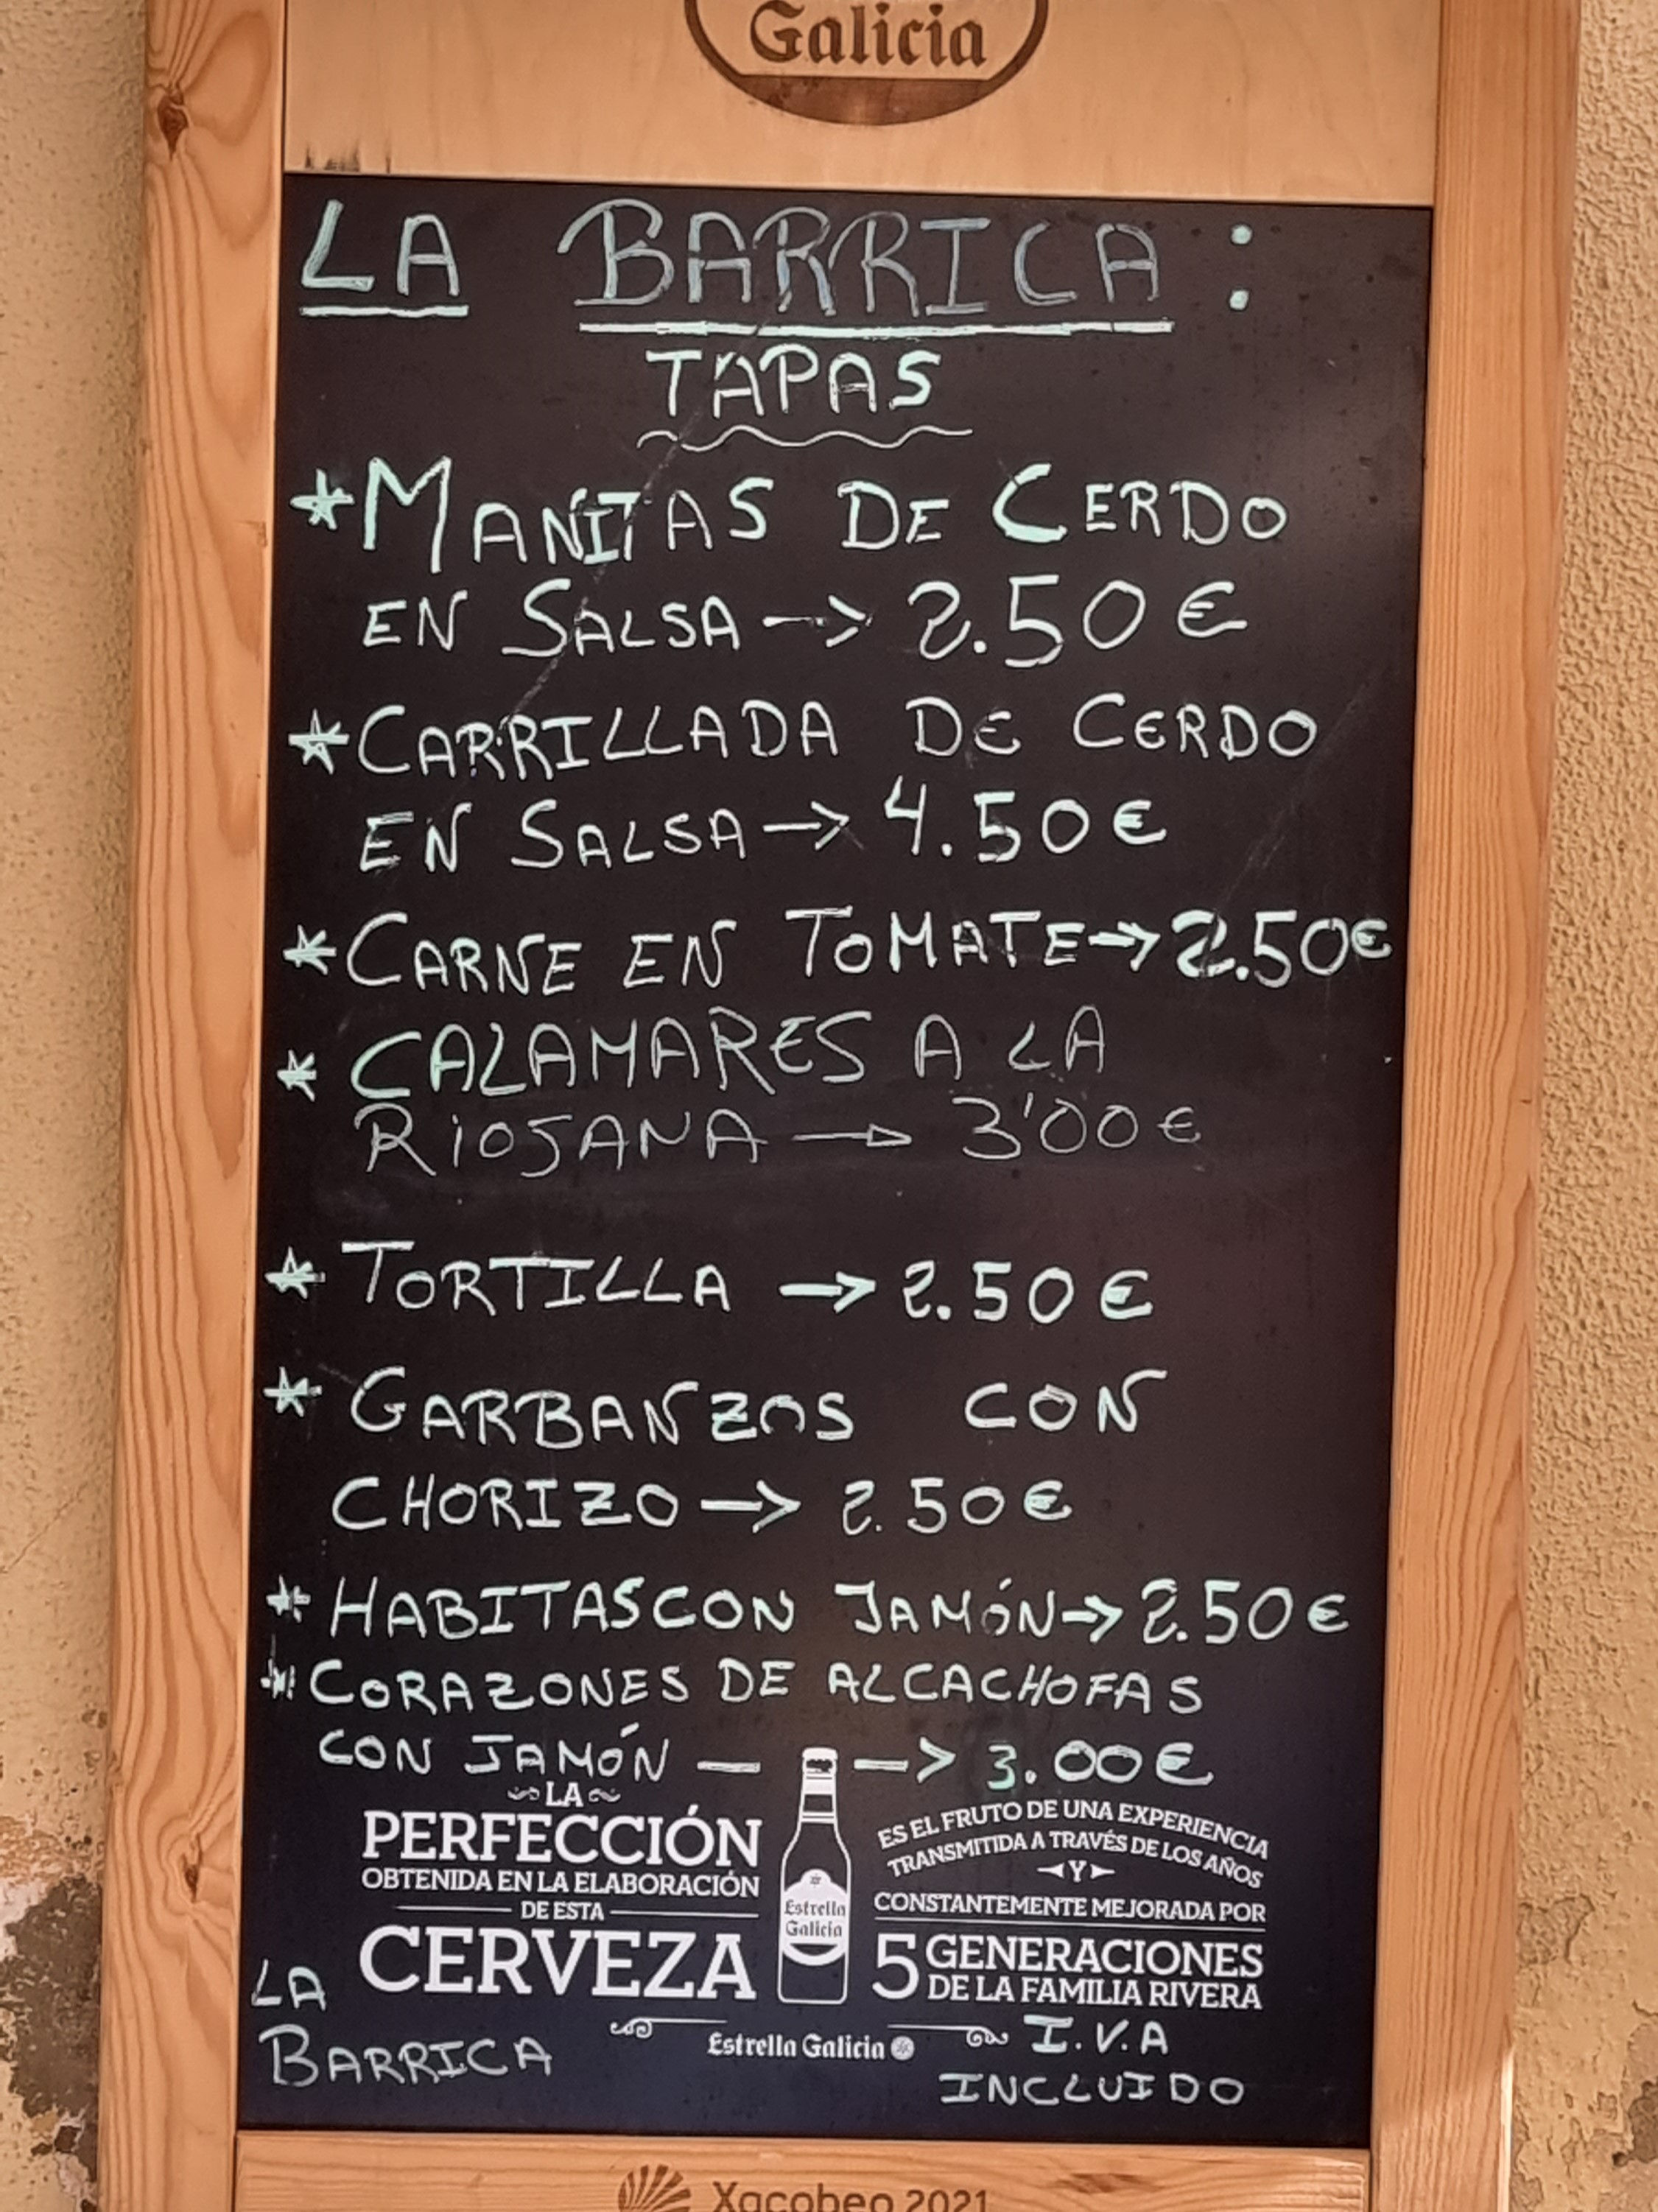 Galicia
LA BARRICA:
TAPAS
*MANITAS DE CERDO
EN SALSA -> 2.50€
*CARRILLADA DE CERDO
EN SALSA -> 4.50€
*CARNE EN TOMATE -> 2.50€
* CALAMARES A LA
RIOJANA -> 3'00€
* TORTILLA -> 2.50€
* GARBANZOS CON
CHORIZO -> 2.50€
* HABITAS CON JAMÓN -> 2.50€
* CORAZONES DE ALCACHOFAS
CON JAMÓN — -> 3.00€
LA
PERFECCIÓN
OBTENIDA EN LA ELABORACIÓN
DE ESTA
CERVEZA
Estrella
Galicia
ES EL FRUTO DE UNA EXPERIENCIA
TRANSMITIDA A TRAVÉS DE LOS AÑOS
Y
CONSTANTEMENTE MEJORADA POR
5 GENERACIONES
DE LA FAMILIA RIVERA
Estrella Galicia
LA
BARRICA
I.V.A
INCLUIDO
Xacobeo 2021